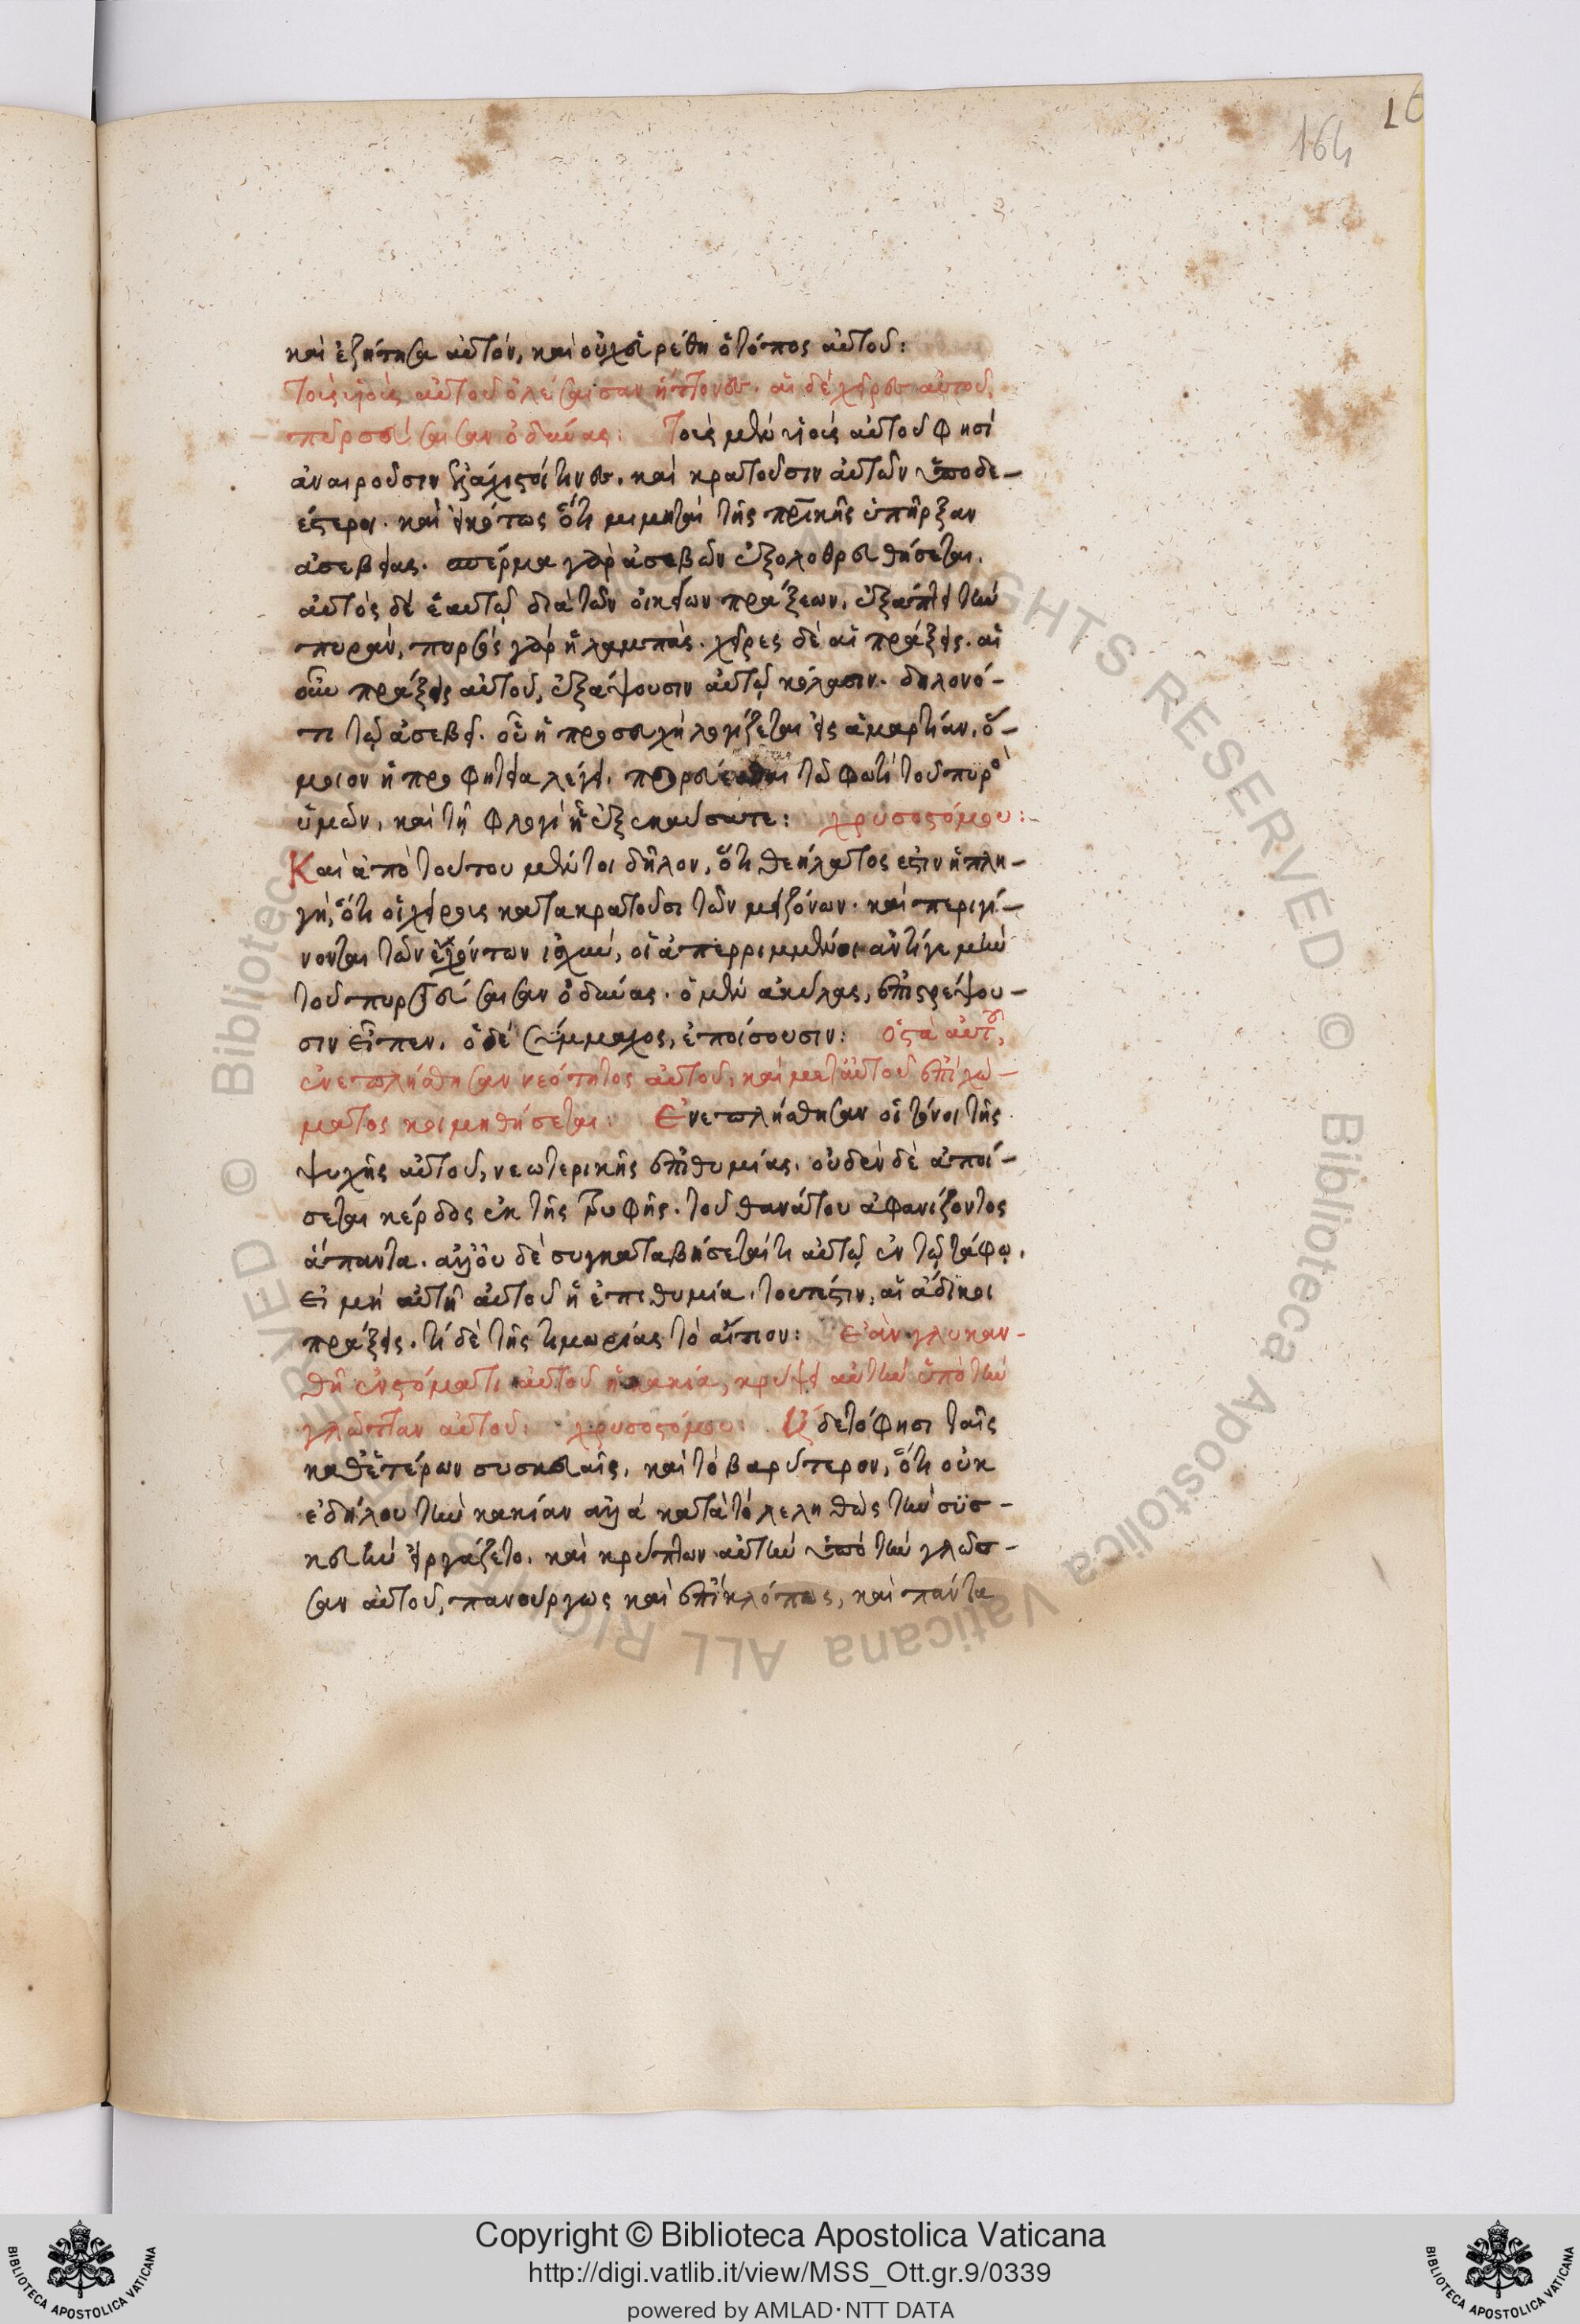 164
καὶ ἐζήτησα αὐτόν, καὶ οὐχ εὑρέθη ὁ τόπος αὐτοῦ:
τοὺς υἱοὺς αὐτοῦ ὀλέσαισαν ἥττονες. αἱ δὲ χεῖρες αὐτοῦ,
πυρσεύσαισαν ὀδύνας: Τοὺς μὲν υἱοὺς αὐτοῦ φησὶ
ἀναιροῦσιν ἐλάχιστοί τινες. καὶ κρατοῦσιν αὐτῶν ὑποδε-
έστεροι. καὶ εἰκότως ὅτι μιμηταὶ τῆς πρικῆς ὑπῆρξαν
ἀσεβείας. σπέρμα γὰρ ἀσεβῶν ἐξολοθρευθήσεται.
αὐτὸς δὲ ἑαυτῷ διὰ τῶν οἰκείων πράξεων, ἐξάπτει τὴν
πυράν, πυρσὸς γὰρ ἡ λαμπάς. χεῖρες δὲ αἱ πράξεις. αἱ
οὖν πράξεις αὐτοῦ, ἐξάψουσιν αὐτῷ κόλασιν. δηλονό-
τι τῷ ἀσεβεῖ. οὗ ἡ προσευχὴ λογίζεται εἰς ἁμαρτίαν, ὅ-
μοιον ἡ προφητεία λέγει. πορεύεσθαι τῷ φωτὶ τοῦ πυρὸ
ὑμῶν, καὶ τῇ φλογὶ ᾗ ἐξεκαύσατε: χρυσοστόμου:
Καὶ ἀπὸ τούτου μέντοι δῆλον, ὅτι θεήλατος ἐστιν ἡ πλη-
γή, ὅτι οἱ χείρους κατακρατοῦσι τῶν μειζόνων. καὶ περιγί-
νονται τῶν ἐχόντων ἰσχύν, οἱ ἀπερριμμένοι ἀντὶ γε μὴν
τοῦ πυρσεύσαισαν ὀδύνας. ὁ μὲν ἀκύλας, ἐπιστρέψου-
σιν εἶπεν. ὁ δὲ σύμμαχος, ἐποίσουσιν: ὀστᾶ αὐτοῦ,
ἐνεπλήσθησαν νεότητος αὐτοῦ, καὶ μετ' αὐτοῦ ἐπὶ χώ-
ματος κοιμηθήσεται: Ἐνεπλήσθησαν οἱ τόνοι τῆς
ψυχῆς αὐτοῦ, νεωτερικῆς ἐπιθυμίας. οὐδὲν δὲ ἀποί-
σεται κέρδος ἐκ τῆς τρυφῆς. τοῦ θανάτου ἀφανίζοντος
ἅπαντα. ἀλλ' οὐδὲ συγκαταβήσεταί τι αὐτῷ ἐν τῷ τάφῳ.
εἰ μὴ αὐτὴ αὐτοῦ ἡ ἐπιθυμία. τουτέστιν, αἱ ἄδικοι
πράξεις. τί δὲ τῆς τιμωρίας τὸ αἴτιον: Ἐὰν γλυκαν-
θῇ ἐν στόματι αὐτοῦ ἡ κακία, κρύψει αὐτὴν ὑπὸ τὴν
γλῶτταν αὐτοῦ: χρυσοστόμου: δε τό φησι ταῖς
καθ' ἑτέρων συσκευαῖς, καὶ τὸ βαρύτερον, ὅτι οὐκ
ἐδήλου τὴν κακίαν ἀλλὰ κατὰ τὸ λεληθὼς τὴν συσ-
κευὴν εἰργάζετο. καὶ κρύπτων αὐτὴν ὑπὸ τὴν γλῶσ-
σαν αὐτοῦ, πανούργως καὶ ἐπικλόπως, καὶ πάντα
Copyright © Biblioteca Apostolica Vaticana
http://digi.vatlib.it/view/MSS_Ott.gr.9/0339
powered by AMLAD·NTT DATA